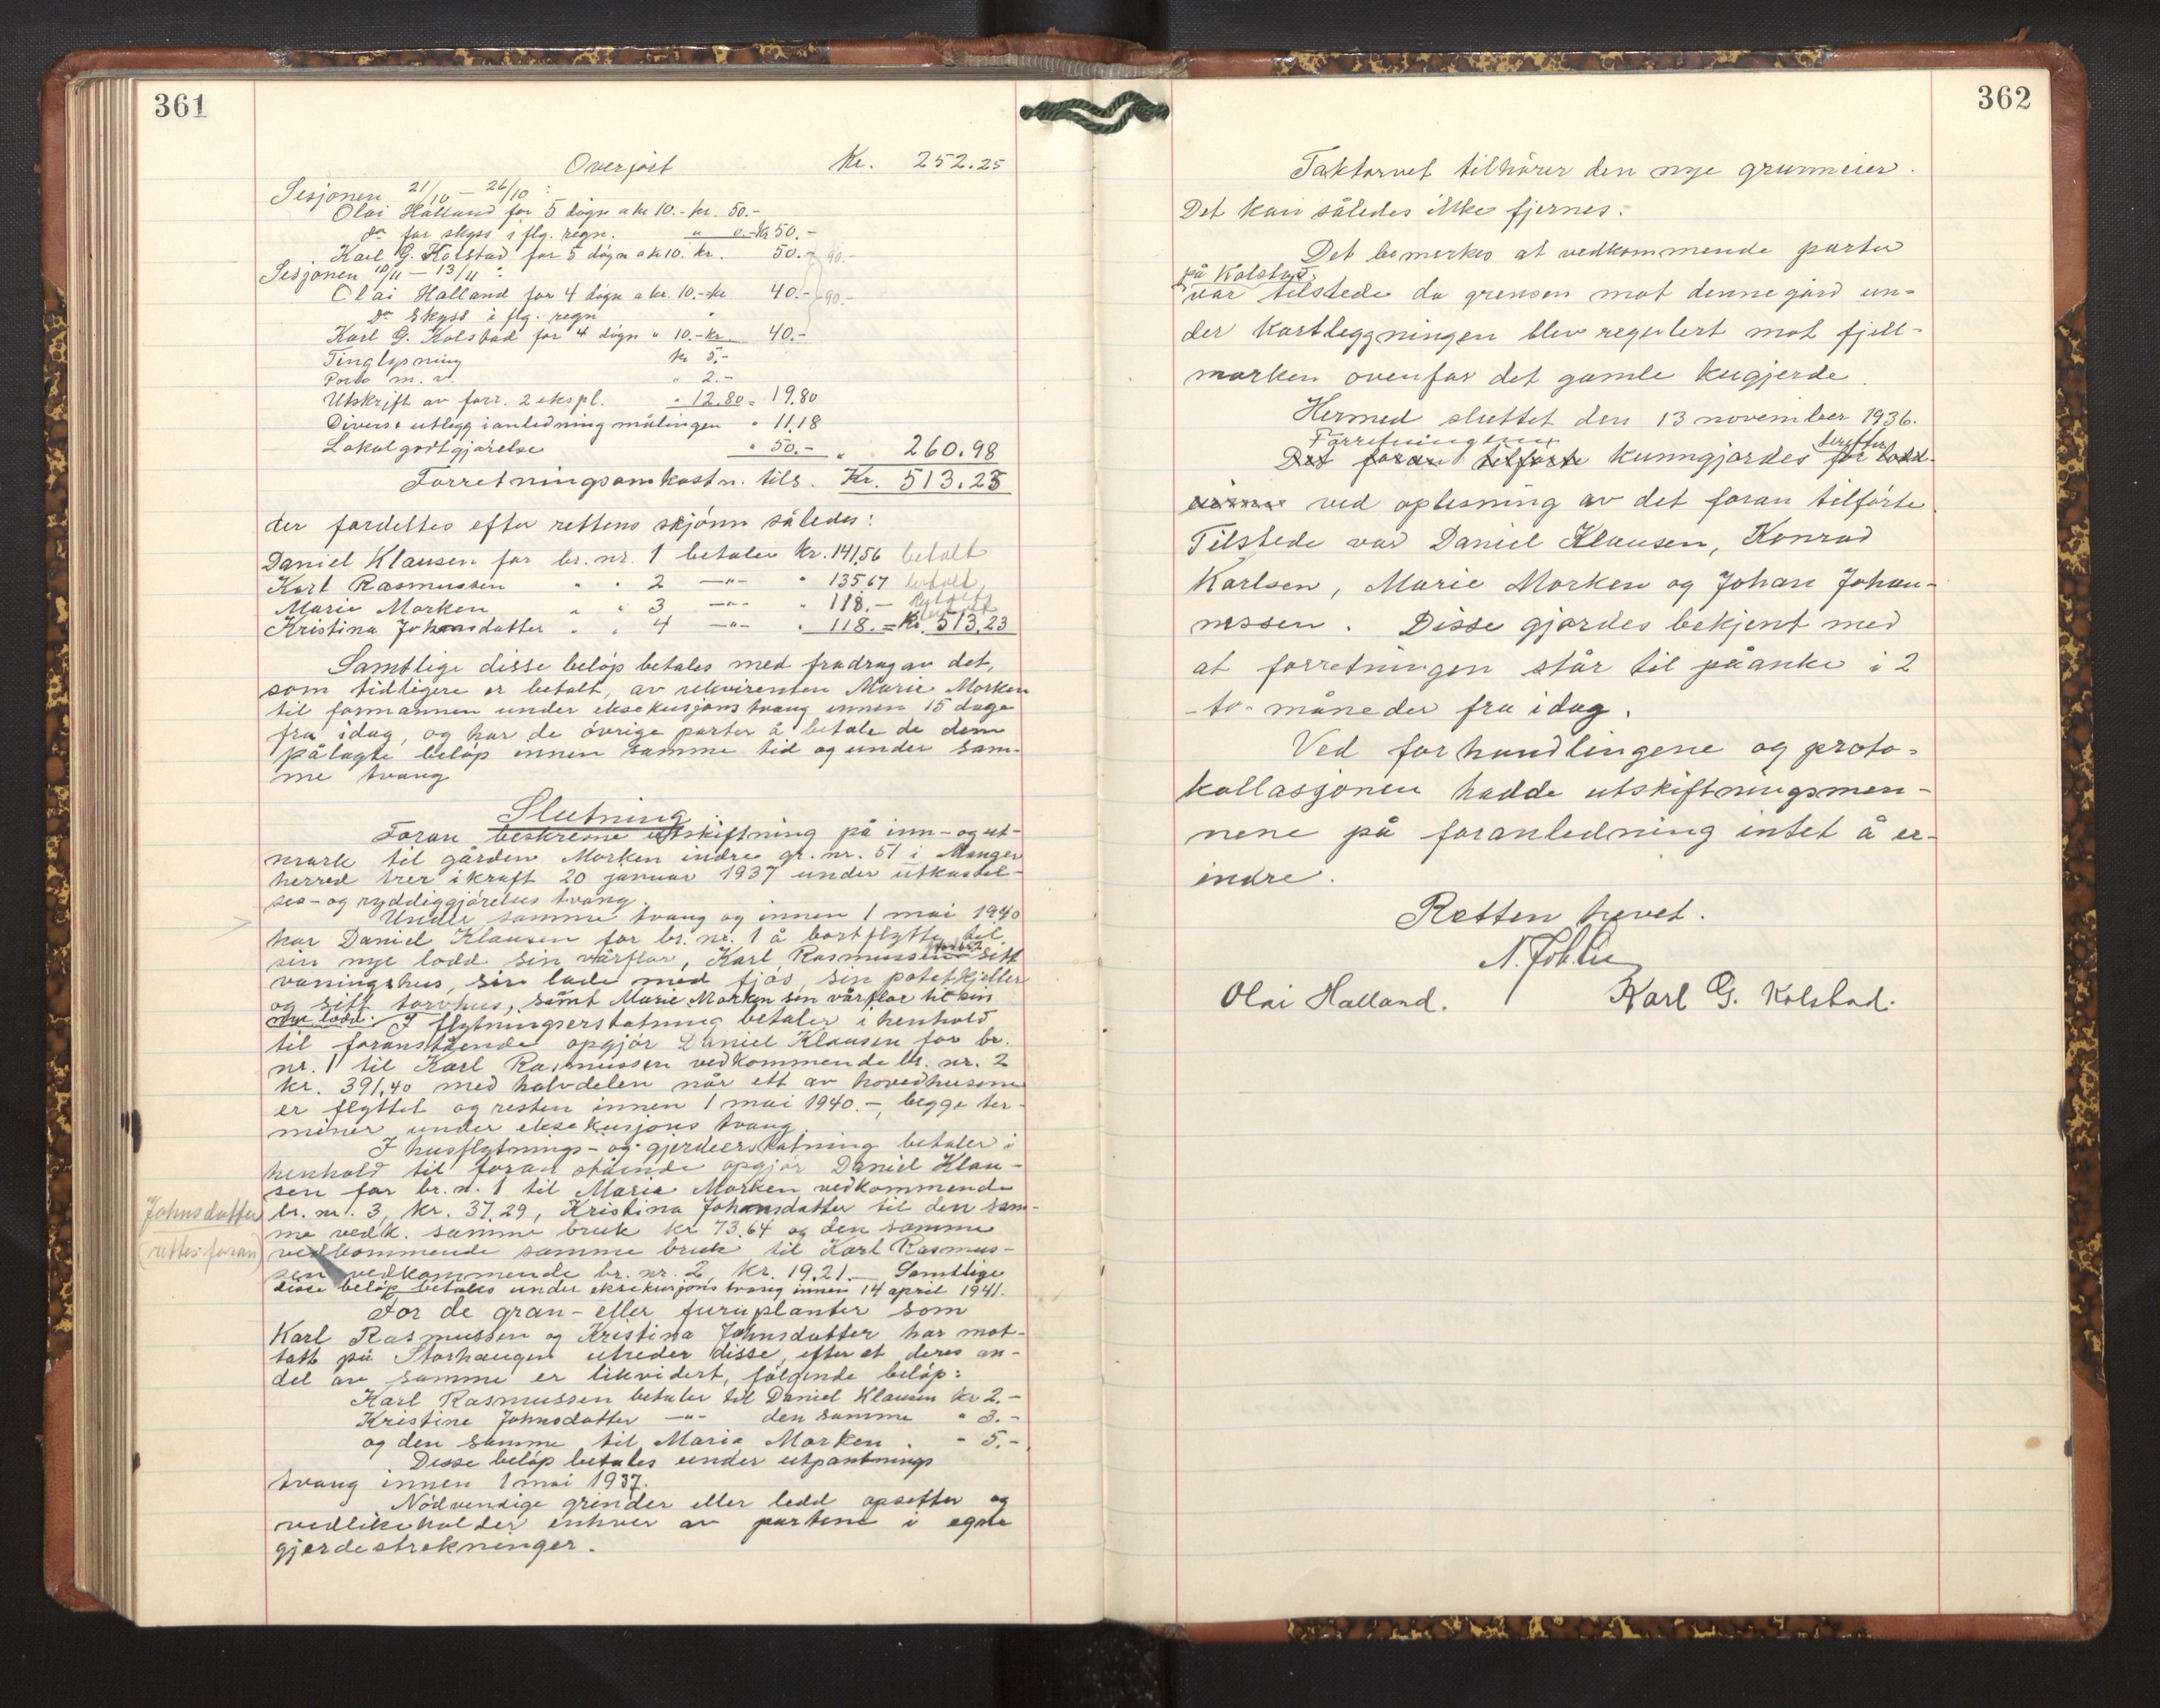 361
Overført Kr. 252.25
Sesjonen 21/10 – 26/10 :
Olai Halland for 5 døgn a kr 10.- kr. 50.-
do for skyss i flg. regn. " 0.- Kr 50.-
Karl G. Kolstad for 5 døgn a kr 10. kr. 50.- 90.-
Sesjonen 10/11 – 13/11 :
Olai Halland for 4 døgn a kr. 10.- kr 40.- 90.-
Do skyss i flg. regn "
Karl G. Kolstad for 4 døgn " 10.- kr. 40.-
Tinglysning kr 5.-
Porto m. v. " 2.-
Utskrift av forr. 2 ekspl. " 12.80 = 19.80
Diverse utlegg i anledning målingen " 11.18
Lokalgodtgjørelse " 50.- " 260.98
Forretningsomkostn. tils. Kr. 513.23
der fordeltes efter rettens skjønn således:
Daniel Klausen for br. nr. 1 betaler kr. 141,56 betalt
Karl Rasmussen " " 2 —"— " 135,67 betalt
Marie Morken " " 3 —"— " 118.-
Kristina Johnsdatter " " 4 —"— " 118.- = Kr. 513,23
Samtlige disse beløp betales med fradrag av det,
som tidligere er betalt, av rekvirenten Marie Morken
til formannen under eksekusjons tvang innen 15 dage
fra idag, og har de øvrige parter å betale de dem
pålagte beløp innen samme tid og under sam-
me tvang
Slutning.
Foran beskrevne utskiftning på inn- og ut-
mark til gården Morken indre gr. nr. 51 i Manger
herred trer ikraft 20 januar 1937 under utkastel-
ses- og ryddiggjørelses tvang.
Under samme tvang og innen 1 mai 1940
har Daniel Klausen for br. nr. 1 å bortflytte til
sin nye lodd sin vårflor, Karl Rasmussen for br. 2 sitt
våningshus, sin lade med fjøs, sin potetkjeller
og sitt torvhus, samt Marie Morken sin vårflor til sin
nye lodd. I flytningserstatning betaler i henhold
til foranstående opgjør Daniel Klausen for br.
nr. 1 til Karl Rasmussen vedkommende br. nr. 2
kr. 391,40 med halvdelen når ett av hovedhusene
er flyttet og resten innen 1 mai 1940.-, begge ter-
miner under eksekusjons tvang.
I husflytnings- og gjerdeerstatning betaler i
henhold til foran stående opgjør Daniel Klau-
sen for br. n. 1 til Marie Morken vedkommende
Johnsdatter br. nr. 3, kr. 37,29, Kristina Johnsdatter til den sam-
me vedk. samme bruk kr 73,64 og den samme
(rettes foran) vedkommende samme bruk til Karl Rasmus-
sen vedkommende br. nr. 2, kr. 19,21.— Samtlige
disse beløp betales under eksekusjons tvang innen 14 april 1941.
For de gran- eller furuplanter som
Karl Rasmussen og Kristina Johnsdatter har mot-
tatt på Storhaugen utreder disse, efter at deres an-
del av samme er likvidert, følgende beløp:
Karl Rasmussen betaler til Daniel Klausen kr 2.-
Kristine Johnsdatter —"— den samme " 3.-
og den samme til Marie Morken . " 5.-
Disse beløp betales under utpantnings
tvang innen 1 mai 1937.
Nødvendige grinder eller ledd opsetter og
vedlikeholder enhver av partene i egne
gjerdestrekninger.
362
Taktorvet tilhører den nye grunneier.
Det kan således ikke fjernes.
Det bemerkes at vedkommende parter
på Kolstad
var tilstede da grensen mot denne gård un-
der kartleggningen blev regulert mot fjell-
marken ovenfor det gamle kugjerde.
Hermed sluttet den 13 november 1936.
Forretningene derefter
Det foran tilførte kunngjordes for lodd-
eierne ved oplesning av det foran tilførte.
Tilstede var Daniel Klausen, Konrad
Karlsen, Marie Morken og Johan Johan-
nessen. Disse gjordes bekjent med
at forretningen står til påanke i 2
-to- måneder fra idag.
Ved forhandlingene og proto-
kollasjonen hadde utskiftningsmen-
nene på foranledning intet å er-
indre.
Retten hevet.
Olai Halland. Karl G. Kolstad.